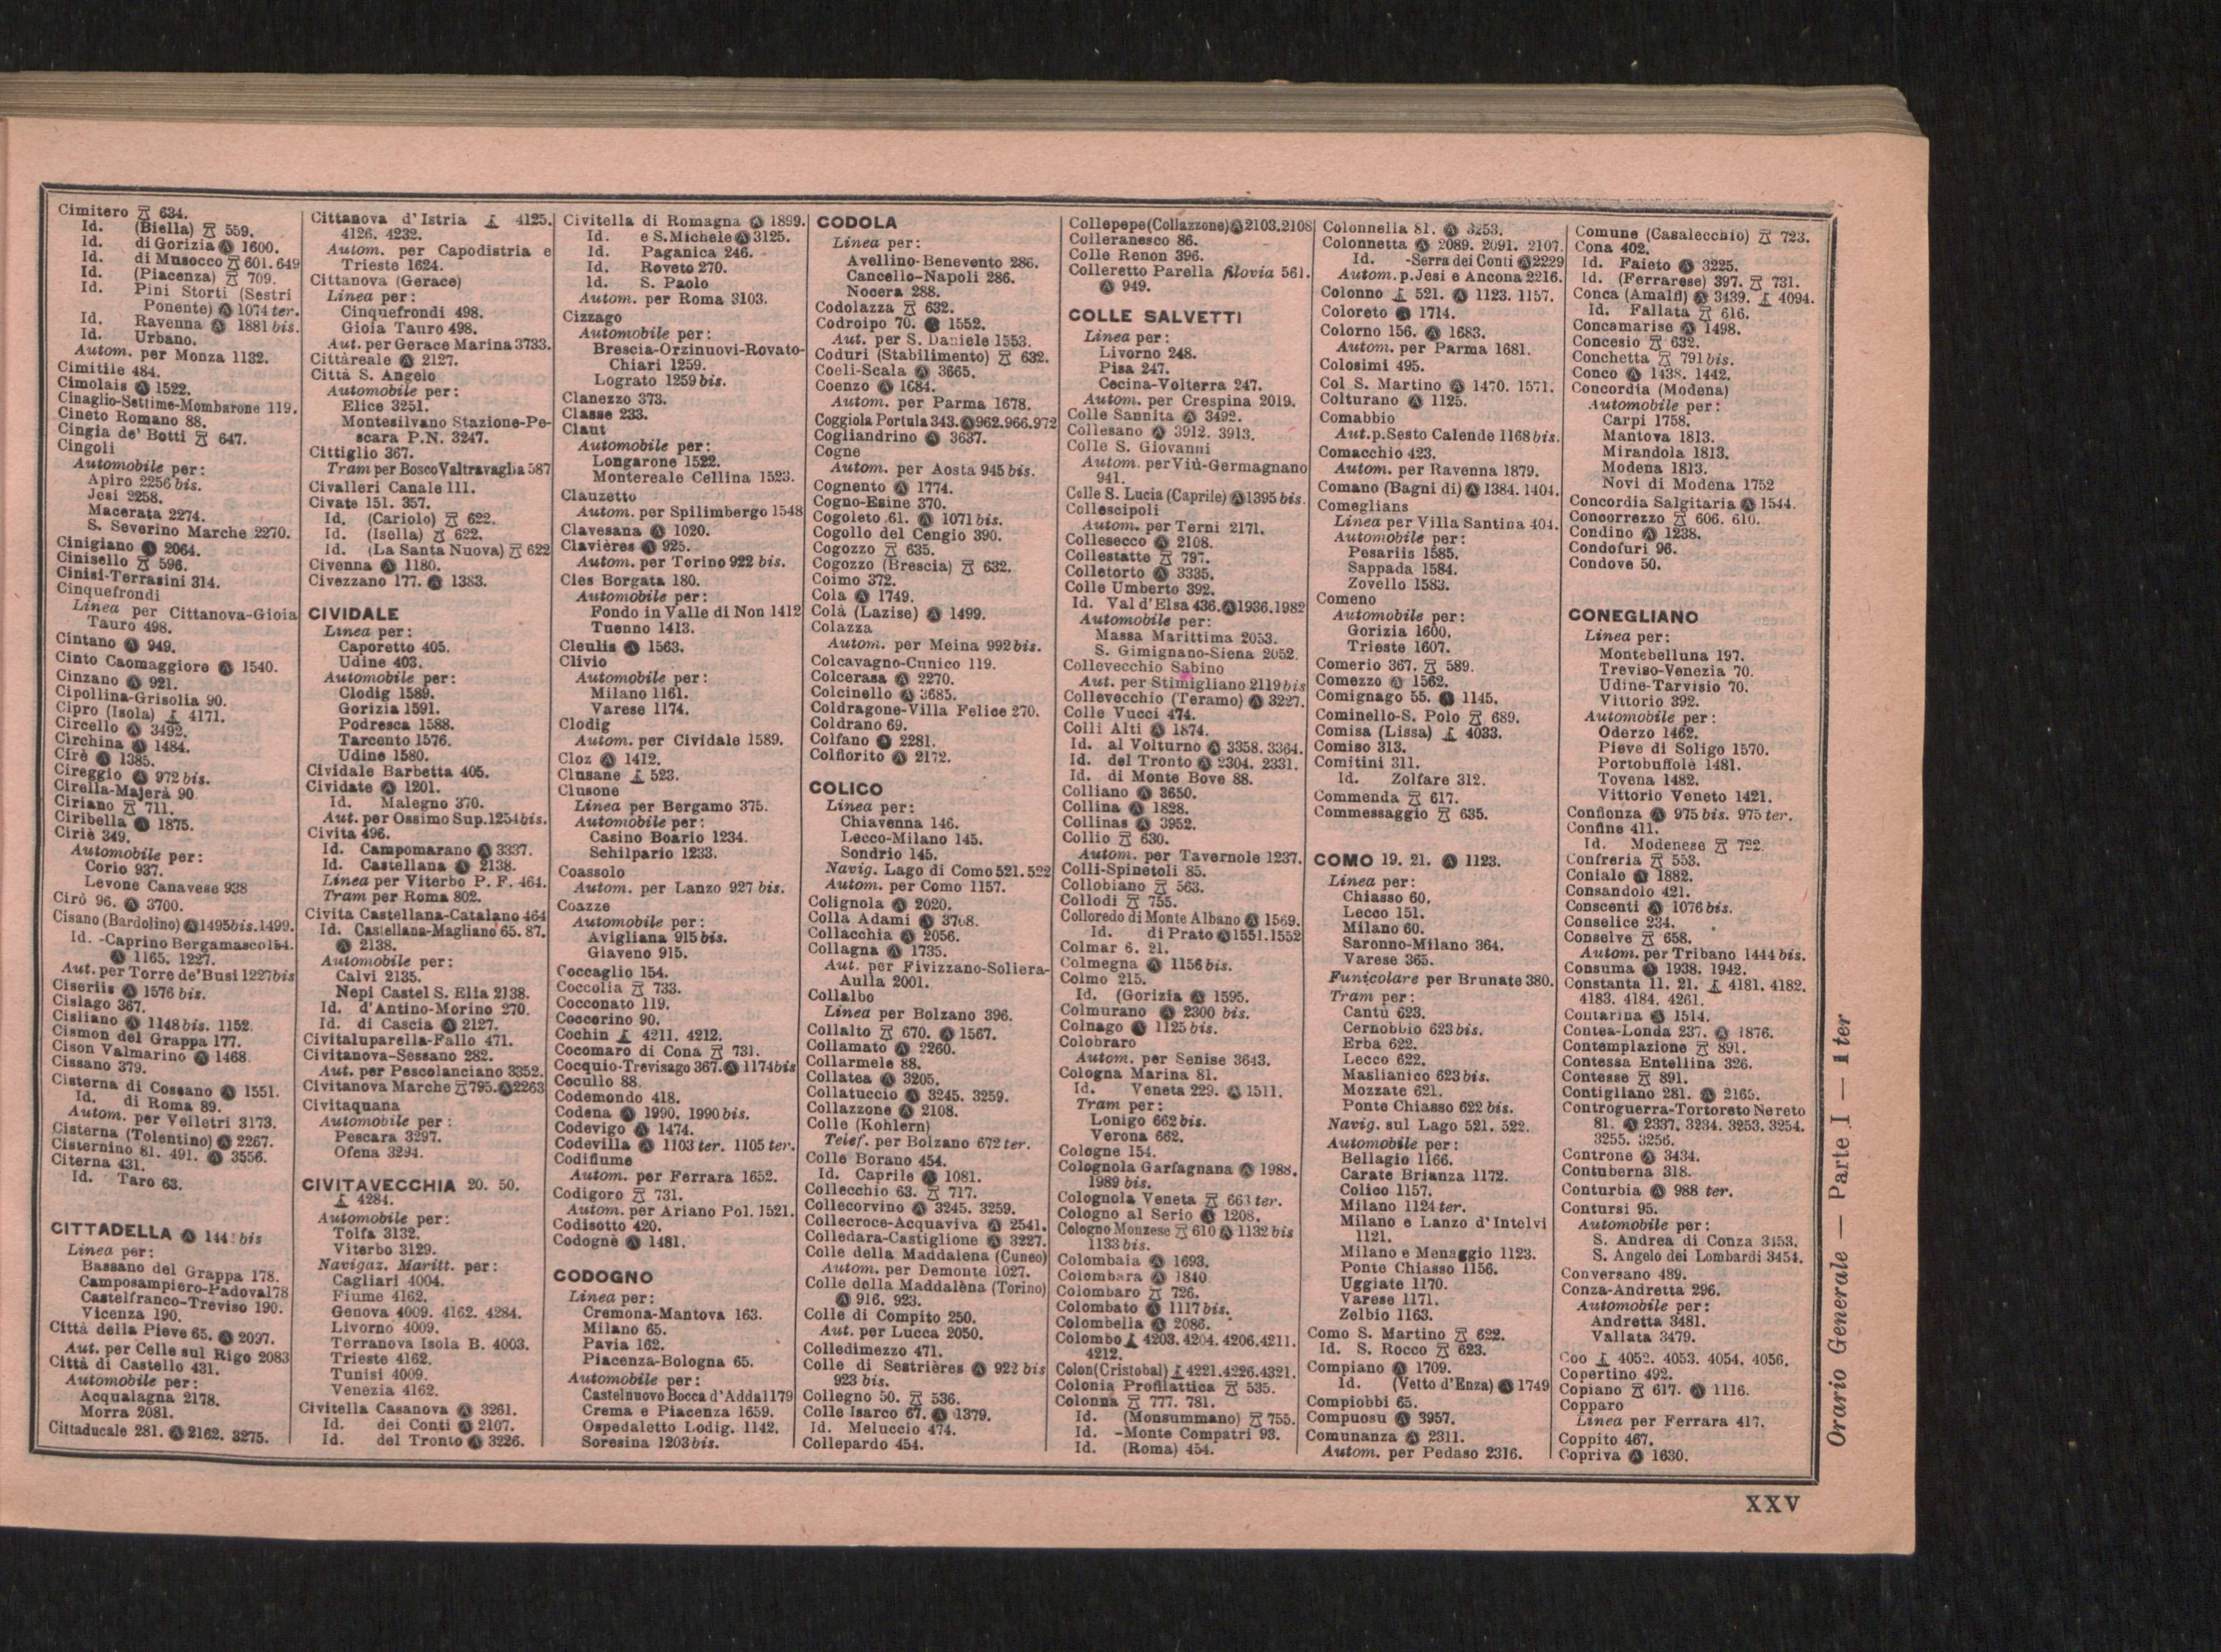 Cimitero 634.
Id. (Biella) 559.
Id. di Gorizia Ⓐ 1600.
Id. di Musocco 601. 649
Id. (Piacenza) 709.
Id. Pini Storti (Sestri
Ponente) Ⓐ 1074 ter.
Id. Ravenna Ⓐ 1881 bis.
Id. Urbano.
Autom. per Monza 1132.
Cimitile 484.
Cimolais Ⓐ 1522.
Cinaglio-Settime-Mombarone 119.
Cineto Romano 88.
Cingia de' Botti 647.
Cingoli
Automobile per:
Apiro 2256 bis.
Jesi 2258.
Macerata 2274.
S. Severino Marche 2270.
Cinigiano Ⓐ 2064.
Cinisello 596.
Cinisi-Terrasini 314.
Cinquefrondi
Linea per Cittanova-Gioia
Tauro 498.
Cintano Ⓐ 949.
Cinto Caomaggiore Ⓐ 1540.
Cinzano Ⓐ 921.
Cipollina-Grisolia 90.
Cipro (Isola) 4171.
Circello Ⓐ 3492.
Circhina Ⓐ 1484.
Cirè Ⓐ 1385.
Cireggio Ⓐ 972 bis.
Cirella-Majerà 90
Ciriano 711.
Ciribella Ⓐ 1875.
Ciriè 349.
Automobile per:
Corio 937.
Levone Canavese 938
Cirò 96. Ⓐ 3700.
Cisano (Bardolino) Ⓐ 1495 bis. 1499.
Id. -Caprino Bergamasco 154.
Ⓐ 1165. 1227.
Aut. per Torre de' Busi 1227 bis
Ciseriis Ⓐ 1576 bis.
Cislago 367.
Cisliano Ⓐ 1148 bis. 1152.
Cismon del Grappa 177.
Cison Valmarino Ⓐ 1468.
Cissano 379.
Cisterna di Coseano Ⓐ 1551.
Id. di Roma 89.
Autom. per Velletri 3173.
Cisterna (Tolentino) Ⓐ 2267.
Cisternino 81. 491. Ⓐ 3556.
Citerna 431.
Id. Taro 63.
CITTADELLA Ⓐ bis
Linea per:
Bassano del Grappa 178.
Camposampiero-Padova 178
Castelfranco-Treviso 190.
Vicenza 190.
Città della Pieve 65. Ⓐ 2097.
Aut. per Celle sul Rigo 2083
Città di Castello 431.
Automobile per:
Acqualagna 2178.
Morra 2081.
Cittaducale 281. Ⓐ 2162. 3275.
Cittanova d'Istria 4125.
4126. 4232.
Autom. per Capodistria e
Trieste 1624.
Cittanova (Gerace)
Linea per:
Cinquefrondi 498.
Gioia Tauro 498.
Aut. per Gerace Marina 3733.
Cittàreale Ⓐ 2127.
Città S. Angelo
Automobile per:
Elice 3251.
Montesilvano Stazione-Pe-
scara P.N. 3247.
Cittiglio 367.
Tram per Bosco Valtravaglia 587
Civalleri Canale 111.
Civate 151. 357.
Id. (Cariolo) 622.
Id. (Isella) 622.
Id. (La Santa Nuova) 622
Civenna Ⓐ 1180.
Civezzano 177. Ⓐ 1383.
CIVIDALE
Linea per:
Caporetto 405.
Udine 403.
Automobile per:
Clodig 1589.
Gorizia 1591.
Podresca 1588.
Tarcento 1576.
Udine 1580.
Cividale Barbetta 405.
Cividate Ⓐ 1201.
Id. Malegno 370.
Aut. per Ossimo Sup. 1254 bis.
Civita 496.
Id. Campomarano Ⓐ 3337.
Id. Castellana Ⓐ 2138.
Linea per Viterbo P. F. 464.
Tram per Roma 802.
Civita Castellana-Catalano 464
Id. Castellana-Magliano 65. 87.
Ⓐ 2138.
Automobile per:
Calvi 2135.
Nepi Castel S. Elia 2138.
Id. d'Antino-Morino 270.
Id. di Cascia Ⓐ 2127.
Civitaluparella-Fallo 471.
Civitanova-Sessano 282.
Aut. per Pescolanciano 3352.
Civitanova Marche 795. Ⓐ 2263
Civitaquana
Automobile per:
Pescara 3297.
Ofena 3294.
CIVITAVECCHIA 20. 50.
4284.
Automobile per:
Tolfa 3132.
Viterbo 3129.
Navigaz. Maritt. per:
Cagliari 4004.
Fiume 4162.
Genova 4009. 4162. 4284.
Livorno 4009.
Terranova Isola B. 4003.
Trieste 4162.
Tunisi 4009.
Venezia 4162.
Civitella Casanova Ⓐ 3261.
Id. dei Conti Ⓐ 2107.
Id. del Tronto Ⓐ 3226.
Civitella di Romagna Ⓐ 1899.
Id. e S. Michele Ⓐ 3125.
Id. Paganica 246.
Id. Roveto 270.
Id. S. Paolo
Autom. per Roma 3103.
Cizzago
Automobile per:
Brescia-Orzinuovi-Rovato-
Chiari 1259.
Lograto 1259 bis.
Clanezzo 373.
Classe 233.
Claut
Automobile per:
Longarone 1522.
Montereale Cellina 1523.
Clauzetto
Autom. per Spilimbergo 1548
Clavesana Ⓐ 1020.
Clavières Ⓐ 925.
Autom. per Torino 922 bis.
Cles Borgata 180.
Automobile per:
Fondo in Valle di Non 1412
Tuenno 1413.
Cleulis Ⓐ 1563.
Clivio
Automobile per:
Milano 1161.
Varese 1174.
Clodig
Autom. per Cividale 1589.
Cloz Ⓐ 1412.
Clusane 523.
Clusone
Linea per Bergamo 375.
Automobile per:
Casino Boario 1234.
Schilpario 1233.
Coassolo
Autom. per Lanzo 927 bis.
Coazze
Automobile per:
Avigliana 915 bis.
Giaveno 915.
Coccaglio 154.
Coccolia 733.
Cocconato 119.
Coccorino 90.
Cochin 4211. 4212.
Cocomaro di Cona 731.
Cocquio-Trevisago 367. Ⓐ 1174 bis
Cocullo 88.
Codemondo 418.
Codena Ⓐ 1990. 1990 bis.
Codevigo Ⓐ 1474.
Codevilla Ⓐ 1103 ter. 1105 ter.
Codifiume
Autom. per Ferrara 1652.
Codigoro 731.
Autom. per Ariano Pol. 1521.
Codisotto 420.
Codognè Ⓐ 1481.
CODOGNO
Linea per:
Cremona-Mantova 163.
Milano 65.
Pavia 162.
Piacenza-Bologna 65.
Automobile per:
Castelnuovo Bocca d'Adda 1179
Crema e Piacenza 1659.
Ospedaletto Lodig. 1142.
Soresina 1203 bis.
CODOLA
Linea per:
Avellino-Benevento 286.
Cancello-Napoli 286.
Nocera 288.
Codolazza 632.
Codroipo 70. Ⓐ 1552.
Aut. per S. Daniele 1553.
Coduri (Stabilimento) 632.
Coeli-Scala Ⓐ 3665.
Coenzo Ⓐ 1684.
Autom. per Parma 1678.
Coggiola Portula 343. Ⓐ 962. 966. 972
Cogliandrino Ⓐ 3637.
Cogne
Autom. per Aosta 945 bis.
Cognento Ⓐ 1774.
Cogno-Esine 370.
Cogoleto 61. Ⓐ 1071 bis.
Cogollo del Cengio 390.
Cogozzo 635.
Cogozzo (Brescia) 632.
Coimo 372.
Cola Ⓐ 1749.
Colà (Lazise) Ⓐ 1499.
Colazza
Autom. per Meina 992 bis.
Colcavagno-Cunico 119.
Colcerasa Ⓐ 2270.
Colcinello Ⓐ 3685.
Coldragone-Villa Felice 270.
Coldrano 69.
Colfano Ⓐ 2281.
Colfiorito Ⓐ 2172.
COLICO
Linea per:
Chiavenna 146.
Lecco-Milano 145.
Sondrio 145.
Navig. Lago di Como 521. 522
Autom. per Como 1157.
Colignola Ⓐ 2020.
Colla Adami Ⓐ 3708.
Collacchia Ⓐ 2056.
Collagna Ⓐ 1735.
Aut. per Fivizzano-Soliera-
Aulla 2001.
Collalbo
Linea per Bolzano 396.
Collalto 670. Ⓐ 1567.
Collamato Ⓐ 2260.
Collarmele 88.
Collatea Ⓐ 3205.
Collatuccio Ⓐ 3245. 3259.
Collazzone Ⓐ 2108.
Colle (Kohlern)
Telef. per Bolzano 672 ter.
Colle Borano 454.
Id. Caprile Ⓐ 1081.
Collecchio 63. 717.
Collecorvino Ⓐ 3245. 3259.
Collecroce-Acquaviva Ⓐ 2541.
Colledara-Castiglione Ⓐ 3227.
Colle della Maddalena (Cuneo)
Autom. per Demonte 1027.
Colle della Maddalèna (Torino)
Ⓐ 916. 923.
Colle di Compito 250.
Aut. per Lucca 2050.
Colledimezzo 471.
Colle di Sestrières Ⓐ 922 bis
923 bis.
Collegno 50. 536.
Colle Isarco 67. Ⓐ 1379.
Id. Meluccio 474.
Collepardo 454.
Collepepe (Collazzone) Ⓐ 2103. 2108
Colleranesco 86.
Colle Renon 396.
Colleretto Parella filovia 561.
Ⓐ 949.
COLLE SALVETTI
Linea per:
Livorno 248.
Pisa 247.
Cecina-Volterra 247.
Autom. per Crespina 2019.
Colle Sannita Ⓐ 3492.
Collesano Ⓐ 3912. 3913.
Colle S. Giovanni
Autom. per Viù-Germagnano
941.
Colle S. Lucia (Caprile) Ⓐ 1395 bis.
Collescipoli
Autom. per Terni 2171.
Collesecco Ⓐ 2108.
Collestatte 797.
Colletorto Ⓐ 3335.
Colle Umberto 392.
Id. Val d'Elsa 436. Ⓐ 1936. 1982
Automobile per:
Massa Marittima 2053.
S. Gimignano-Siena 2052.
Collevecchio Sabino
Aut. per Stimigliano 2119 bis
Collevecchio (Teramo) Ⓐ 3227.
Colle Vucci 474.
Colli Alti Ⓐ 1874.
Id. al Volturno Ⓐ 3358. 3364.
Id. del Tronto Ⓐ 2304. 2331.
Id. di Monte Bove 88.
Colliano Ⓐ 3650.
Collina Ⓐ 1828.
Collinas Ⓐ 3952.
Collio 630.
Autom. per Tavernole 1237.
Colli-Spinetoli 85.
Collobiano 563.
Collodi 755.
Colloredo di Monte Albano Ⓐ 1569.
Id. di Prato Ⓐ 1551. 1552
Colmar 6. 21.
Colmegna Ⓐ 1156 bis.
Colmo 215.
Id. (Gorizia Ⓐ 1595.
Colmurano Ⓐ 2300 bis.
Colnago Ⓐ 1125 bis.
Colobraro
Autom. per Senise 3643.
Cologna Marina 81.
Id. Veneta 229. Ⓐ 1511.
Tram per:
Lonigo 662 bis.
Verona 662.
Cologne 154.
Colognola Garfagnana Ⓐ 1988.
1989 bis.
Colognola Veneta 661 ter.
Cologno al Serio Ⓐ 1208.
Cologno Monzese 610 Ⓐ 1132 bis
1133 bis.
Colombaia Ⓐ 1693.
Colombara Ⓐ 1840
Colombaro 726.
Colombato Ⓐ 1117 bis.
Colombella Ⓐ 2086.
Colombo 4203. 4204. 4206. 4211.
4212.
Colon (Cristobal) 4221. 4226. 4321.
Colonia Profilattica 535.
Colonna 777. 781.
Id. (Monsummano) 755.
Id. -Monte Compatri 93.
Id. (Roma) 454.
Colonnella 81. Ⓐ 3253.
Colonnetta Ⓐ 2089. 2091. 2107.
Id. -Serra dei Conti Ⓐ 2229
Autom. p. Jesi e Ancona 2216.
Colonno 521. Ⓐ 1123. 1157.
Coloreto Ⓐ 1714.
Colorno 156. Ⓐ 1683.
Autom. per Parma 1681.
Colosimi 495.
Col S. Martino Ⓐ 1470. 1571.
Colturano Ⓐ 1125.
Comabbio
Aut. p. Sesto Calende 1168 bis.
Comacchio 423.
Autom. per Ravenna 1879.
Comano (Bagni di) Ⓐ 1384. 1404.
Comeglians
Linea per Villa Santina 404.
Automobile per:
Pesariis 1585.
Sappada 1584.
Zovello 1583.
Comeno
Automobile per:
Gorizia 1600.
Trieste 1607.
Comerio 367. 589.
Comezzo Ⓐ 1562.
Comignago 55. Ⓐ 1145.
Cominello-S. Polo 689.
Comisa (Lissa) 4033.
Comiso 313.
Comitini 311.
Id. Zolfare 312.
Commenda 617.
Commessaggio 635.
COMO 19. 21. Ⓐ 1123.
Linea per:
Chiasso 60.
Lecco 151.
Milano 60.
Saronno-Milano 364.
Varese 365.
Funicolare per Brunate 380.
Tram per:
Cantù 623.
Cernobbio 623 bis.
Erba 622.
Lecco 622.
Maslianico 623 bis.
Mozzate 621.
Ponte Chiasso 622 bis.
Navig. sul Lago 521. 522.
Automobile per:
Bellagio 1166.
Carate Brianza 1172.
Colico 1157.
Milano 1124 ter.
Milano e Lanzo d'Intelvi
1121.
Milano e Menaggio 1123.
Ponte Chiasso 1156.
Uggiate 1170.
Varese 1171.
Zelbio 1163.
Como S. Martino 622.
Id. S. Rocco 623.
Compiano Ⓐ 1709.
Id. (Vetto d'Enza) Ⓐ 1749
Compiobbi 65.
Compuosu Ⓐ 3957.
Comunanza Ⓐ 2311.
Autom. per Pedaso 2316.
Comune (Casalecchio) 723.
Cona 402.
Id. Faieto Ⓐ 3225.
Id. (Ferrarese) 397. 731.
Conca (Amalfi) Ⓐ 3439. 4094.
Id. Fallata 616.
Concamarise Ⓐ 1498.
Concesio 632.
Conchetta 791 bis.
Conco Ⓐ 1438. 1442.
Concordia (Modena)
Automobile per:
Carpi 1758.
Mantova 1813.
Mirandola 1813.
Modena 1813.
Novi di Modena 1752
Concordia Salgitaria Ⓐ 1544.
Concorrezzo 606. 610.
Condino Ⓐ 1238.
Condofuri 96.
Condove 50.
CONEGLIANO
Linea per:
Montebelluna 197.
Treviso-Venezia 70.
Udine-Tarvisio 70.
Vittorio 392.
Automobile per:
Oderzo 1462.
Pieve di Soligo 1570.
Portobuffolè 1481.
Tovena 1482.
Vittorio Veneto 1421.
Confienza Ⓐ 975 bis. 975 ter.
Confine 411.
Id. Modenese 722.
Confreria 553.
Coniale Ⓐ 1882.
Consandolo 421.
Conscenti Ⓐ 1076 bis.
Conselice 234.
Conselve 658.
Autom. per Tribano 1444 bis.
Consuma Ⓐ 1938. 1942.
Constanta 11. 21. 4181. 4182.
4183. 4184. 4261.
Contarina Ⓐ 1514.
Contea-Londa 237. Ⓐ 1876.
Contemplazione 891.
Contessa Entellina 326.
Contesse 891.
Contigliano 281. Ⓐ 2165.
Controguerra-Tortoreto Nereto
81. Ⓐ 2337. 3234. 3253. 3254.
3255. 3256.
Controne Ⓐ 3434.
Contuberna 318.
Conturbia Ⓐ 988 ter.
Contursi 95.
Automobile per:
S. Andrea di Conza 3453.
S. Angelo dei Lombardi 3454.
Conversano 489.
Conza-Andretta 296.
Automobile per:
Andretta 3481.
Vallata 3479.
Coo 4052. 4053. 4054. 4056.
Copertino 492.
Copiano 617. Ⓐ 1116.
Copparo
Linea per Ferrara 417.
Coppito 467.
Copriva Ⓐ 1630.
Orario Generale — Parte I — 1 ter
XXV